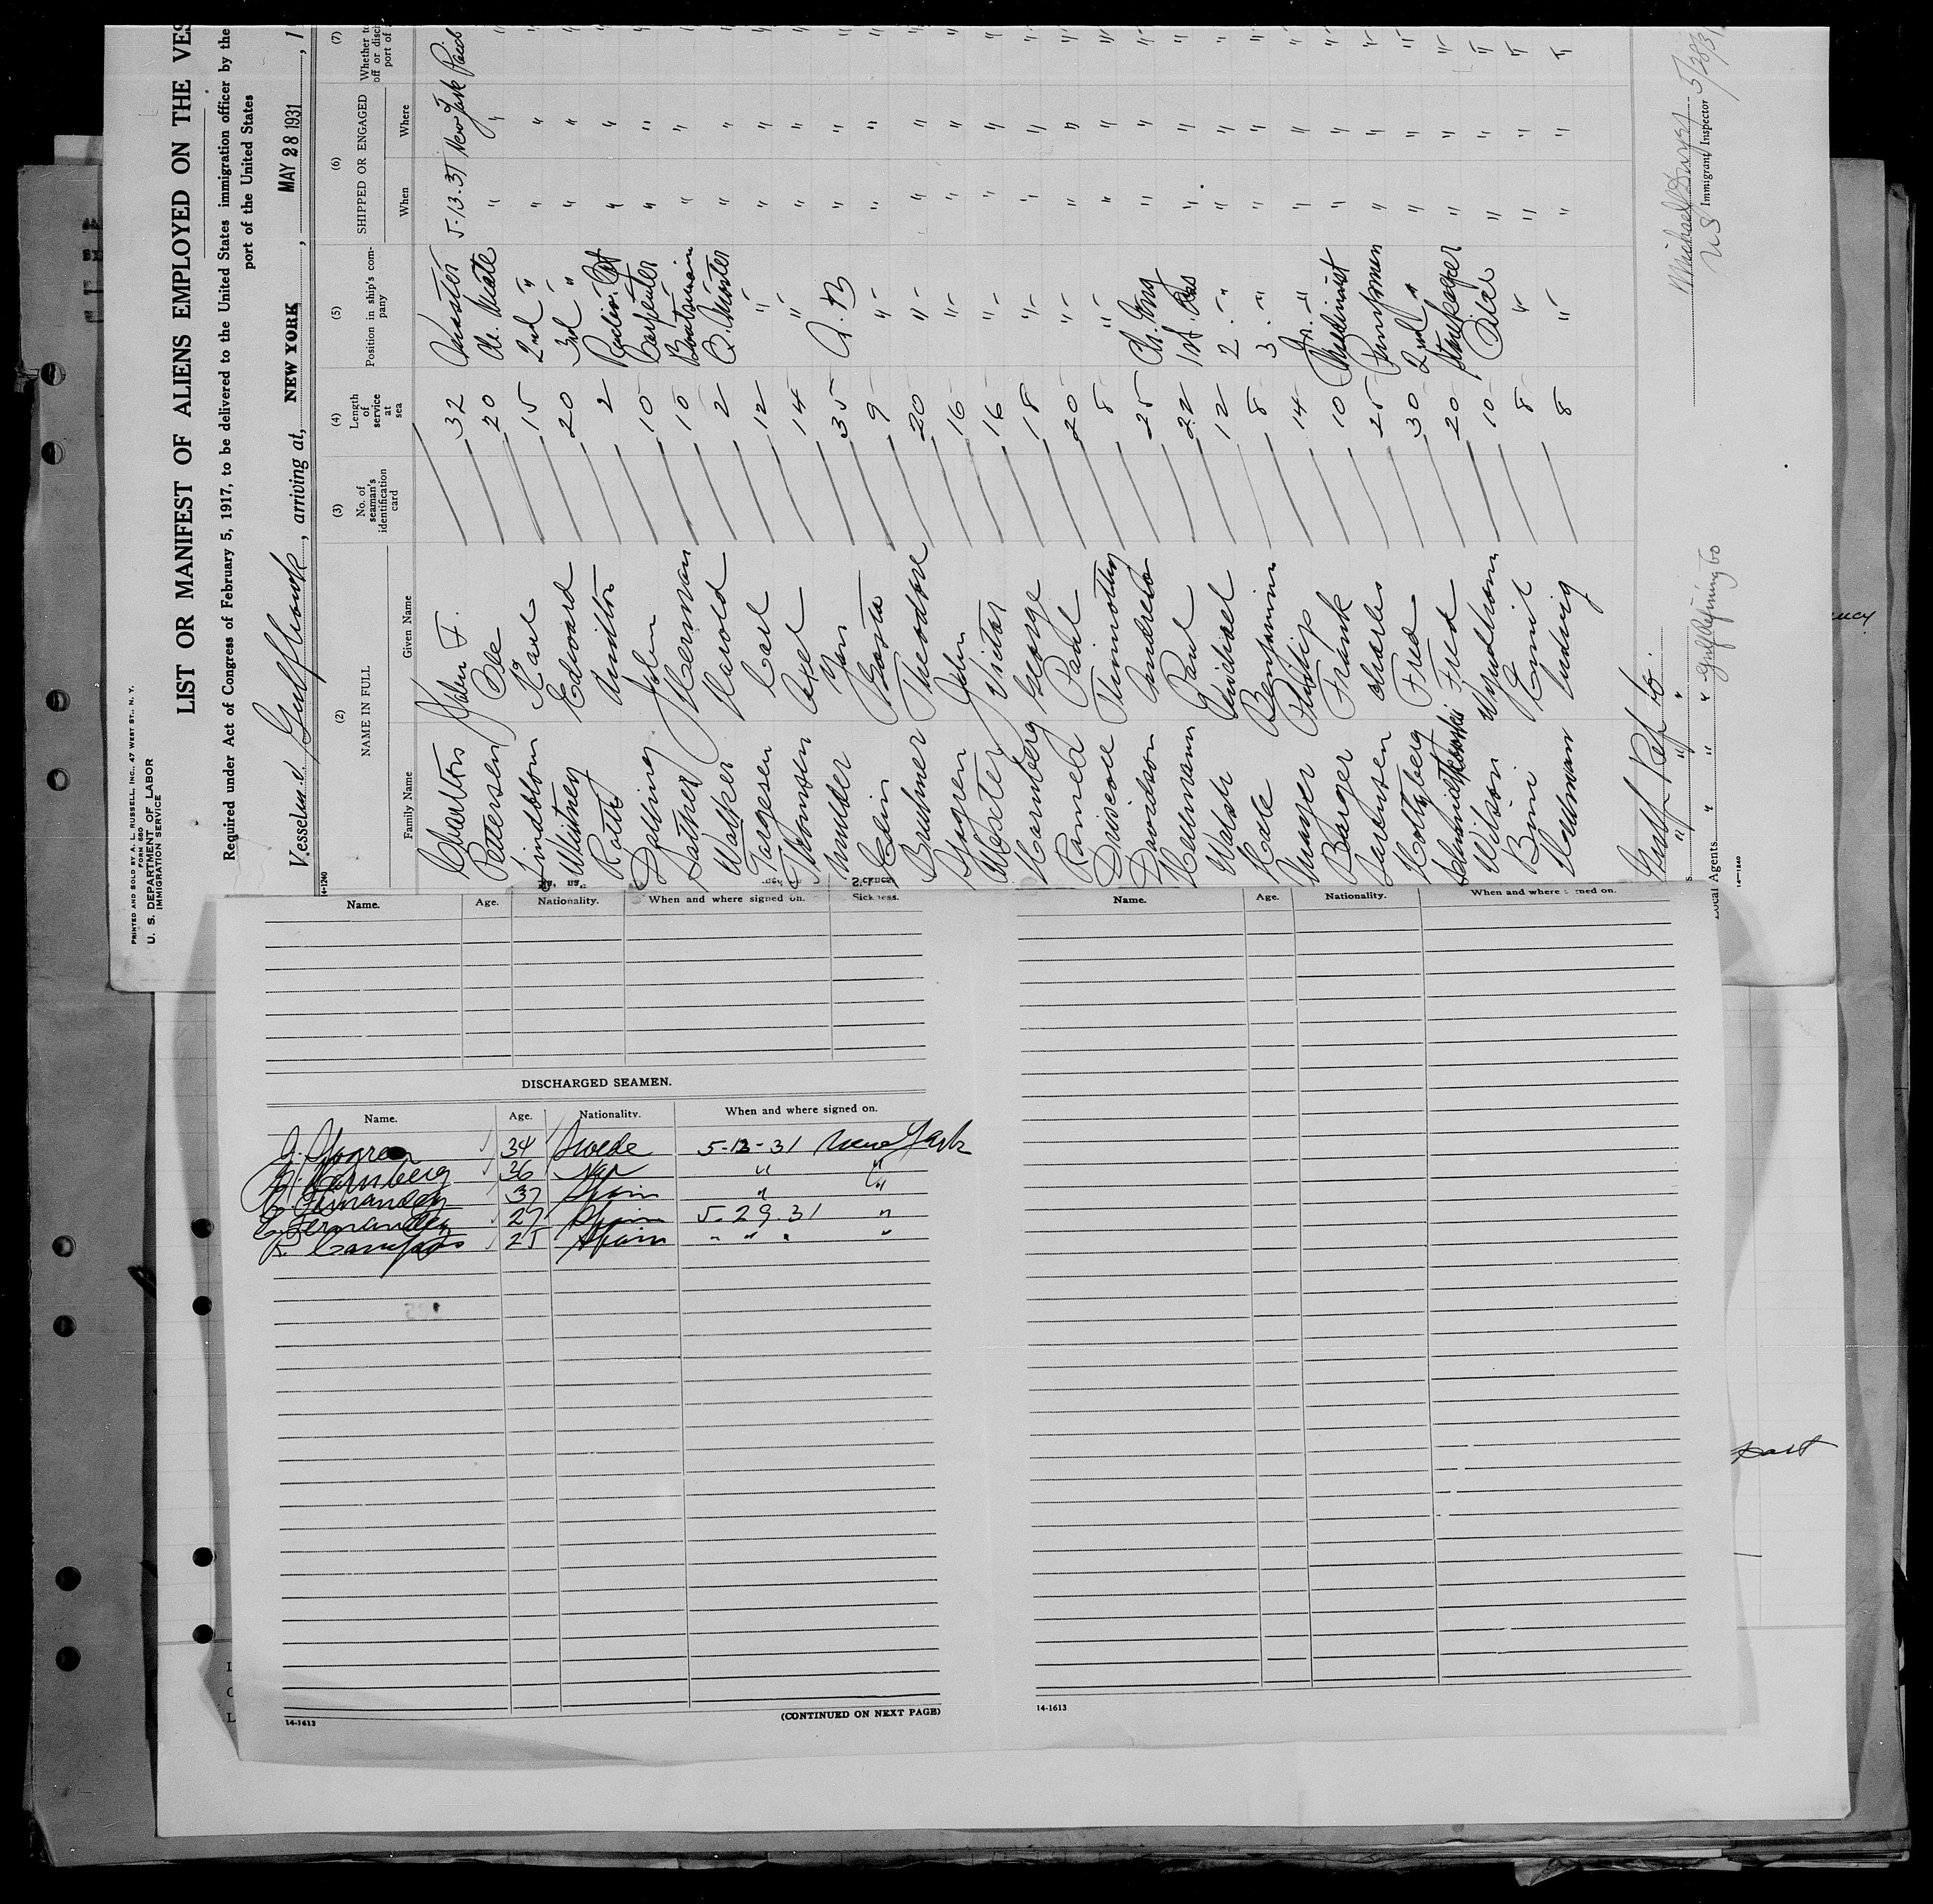 PRINTED AND SOLD BY A. L. RUSSELL, INC., 47 WEST ST., N. Y.
U. S. DEPARTMENT OF LABOR
FORM 680
IMMIGRATION SERVICE
LIST OR MANIFEST OF ALIENS EMPLOYED ON THE VES
Required under Act of Congress of February 5, 1917, to be delivered to the United States immigration officer by the
port of the United States
Vessel Gulfhawk, arriving at, NEW YORK, MAY 28 1931, 1
14-1240
(2) (3) (4) (5) (6) (7)
NAME IN FULL
Family Name Given Name
No. of seaman's identification card
Length of service at sea
Position in ship's company
SHIPPED OR ENGAGED
When Where
Whether to
off or disc
port of
Charlton John F. 32 Master 5-13-31 New York
Pettersen Ole 20 Ch. Mate " "
Lindblom Karl 15 2nd " " "
Whitney Edward 20 3rd " " "
Roth Hamilton 2 Radio Opt " "
Dahling John 10 Carpenter " "
Sather Herman 10 Boatsman " "
Walker Harold 2 Q. Master " "
Torgesen Carl 12 " " "
Thomsen Axel 14 " " "
Mulder 35 A. B " "
Edin Gosta 9 " " "
Theodore 20 " " "
Sjogren John 16 " " "
Wester Victor 16 " " "
Harnberg George 18 " " "
Paul 20 " " "
Driscoll Timmothy 8 " " "
Davidson Andrew 25 Ch. Eng " "
Hermann Paul 22 1st Ass " "
Walsh Michael 12 2 " " "
Hale Benjamin 8 3 " " "
Mayer Philip 14 Jr. " " "
Barger Frank 10 Machinist " "
Larsen Charles 25 Pumpman " "
Holtzberg Fred 30 2nd " " "
Fred 20 Storekeeper " "
Wilson Wyndham 10 Oiler " "
Bini Emil 8 " " "
Ludwig 8 " " "
Gulf Ref Co.
" " "
Local Agents " " " Gulf Refining Co
14-1240
U S Immigrant Inspector 5/28/31
Name. Age. Nationality. When and where signed on. Sickness.
DISCHARGED SEAMEN.
Name. Age. Nationality. When and where signed on.
J. Sjogren 34 Swede 5-13-31 New York
G. Harnberg 36 " "
37 Spain " "
Fernandez 27 Spain 5.29.31 "
R. Campos 25 Spain " " " "
14-1613
(CONTINUED ON NEXT PAGE)
Name. Age. Nationality. When and where signed on.
14-1613
part